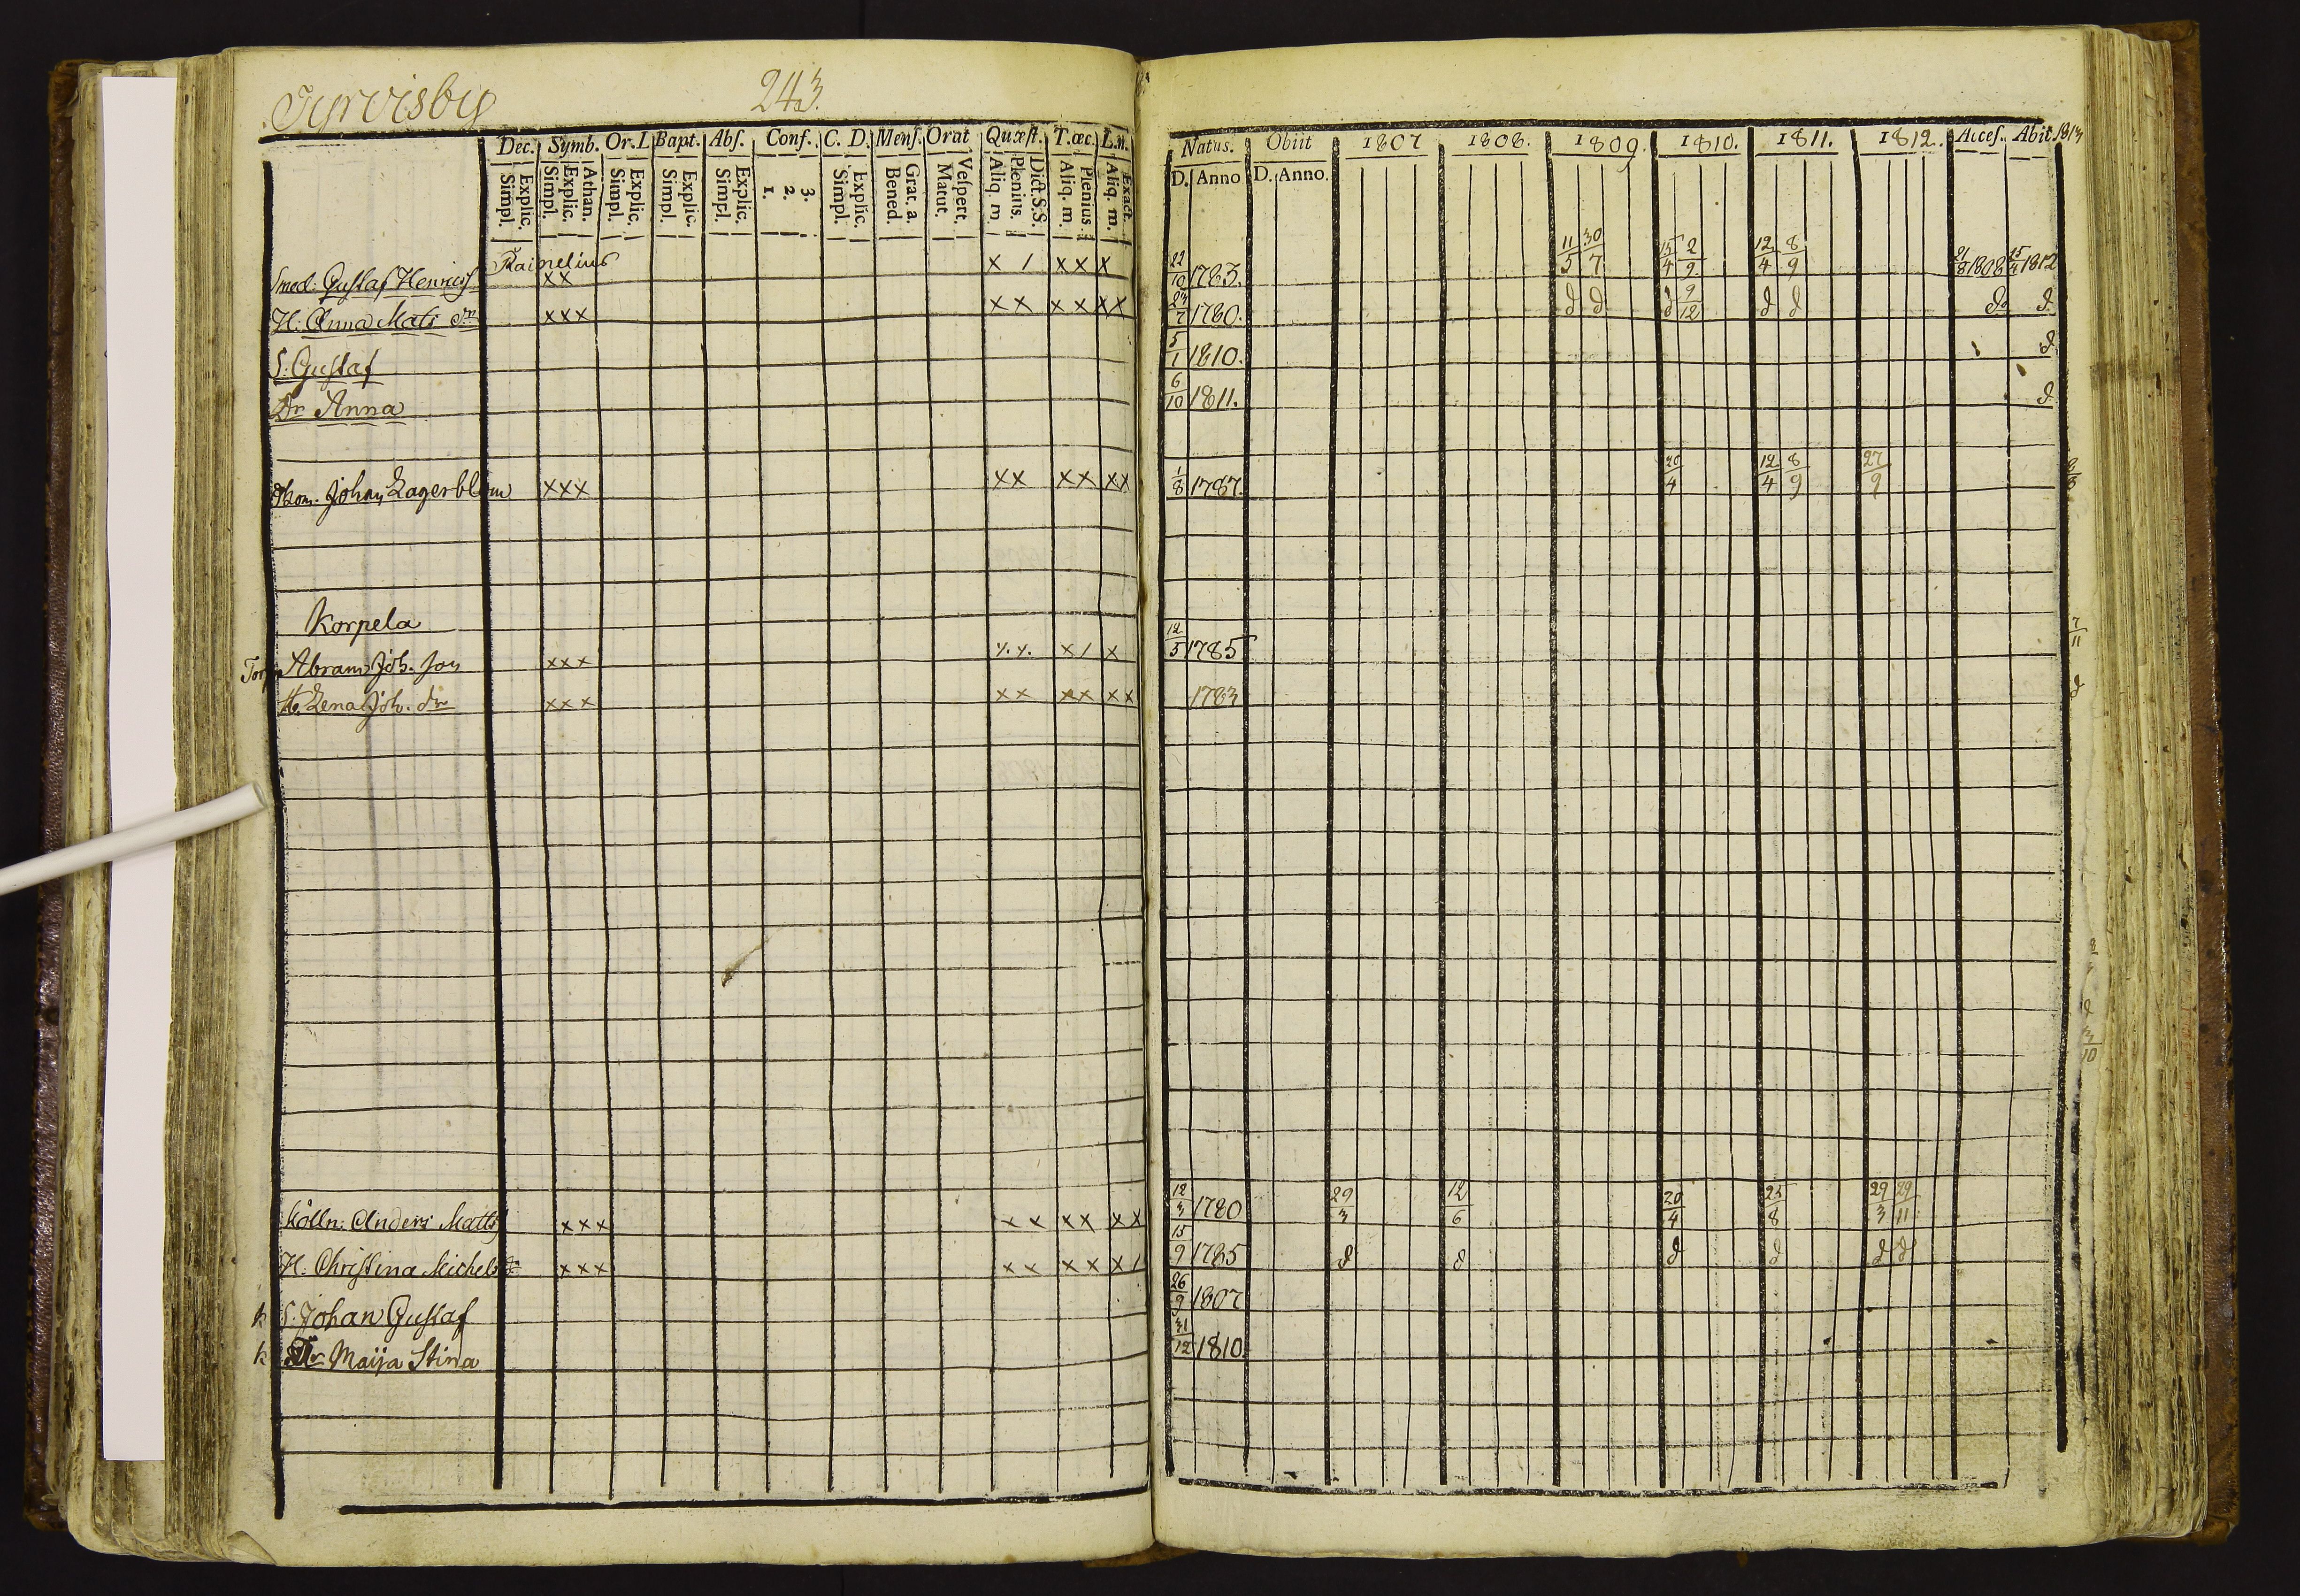 Tyrvisby 243
Dec. Symb. Or. L Bapt. Abs. Conf. C. D. Mens. Orat Quæst. T. œc. L.n. Natus. Obiit 1807 1808. 1809. 1810. 1811. 1812. Acces. Abit. 1813
Explic. Simpl. Athan. Explic. Simpl. Explic. Simpl. Explic. Simpl. Explic. Simpl. 3. 2. 1. Explic. Simpl. Grat. a. Bened. Vespert. Matut. Dict. S.S. Plenius. Aliq. m. Plenius. Aliq. m. Exact. Aliq. m. D. Anno D. Anno.
Smed: Gustaf Henrics Rainelius xx x / xx x 22/10 1783. 11/5 30/7 15/4 2/9 12/4 8/9 21/8 1808 15/4 1812
H: Anna Mats dr xxx xx xx xx 23/7 1780. d d d 9/12 d d d. d.
S: Gustaf 5/1 1810. d
Dr Anna 6/10 1811. d
Johan Lagerblom xxx xx xx xx 1/8 1787. 20/4 12/4 8/9 27/9
Korpela
Torp Abram Joh. son xxx x x x / x 12/5 1785 7/11
H. Lena Joh. dr xxx xx xx xx 1783 d
8
d
3/10
Kölln: Anders Matts xxx xx xx xx 12/3 1780 29/3 12/6 20/4 25/8 29/3 29/11
H: Christina Michels xxx xx xx x / 15/9 1785 d d d d d d
k S: Johan Gustaf 26/9 1807
k Dr Maija Stina 31/12 1810.